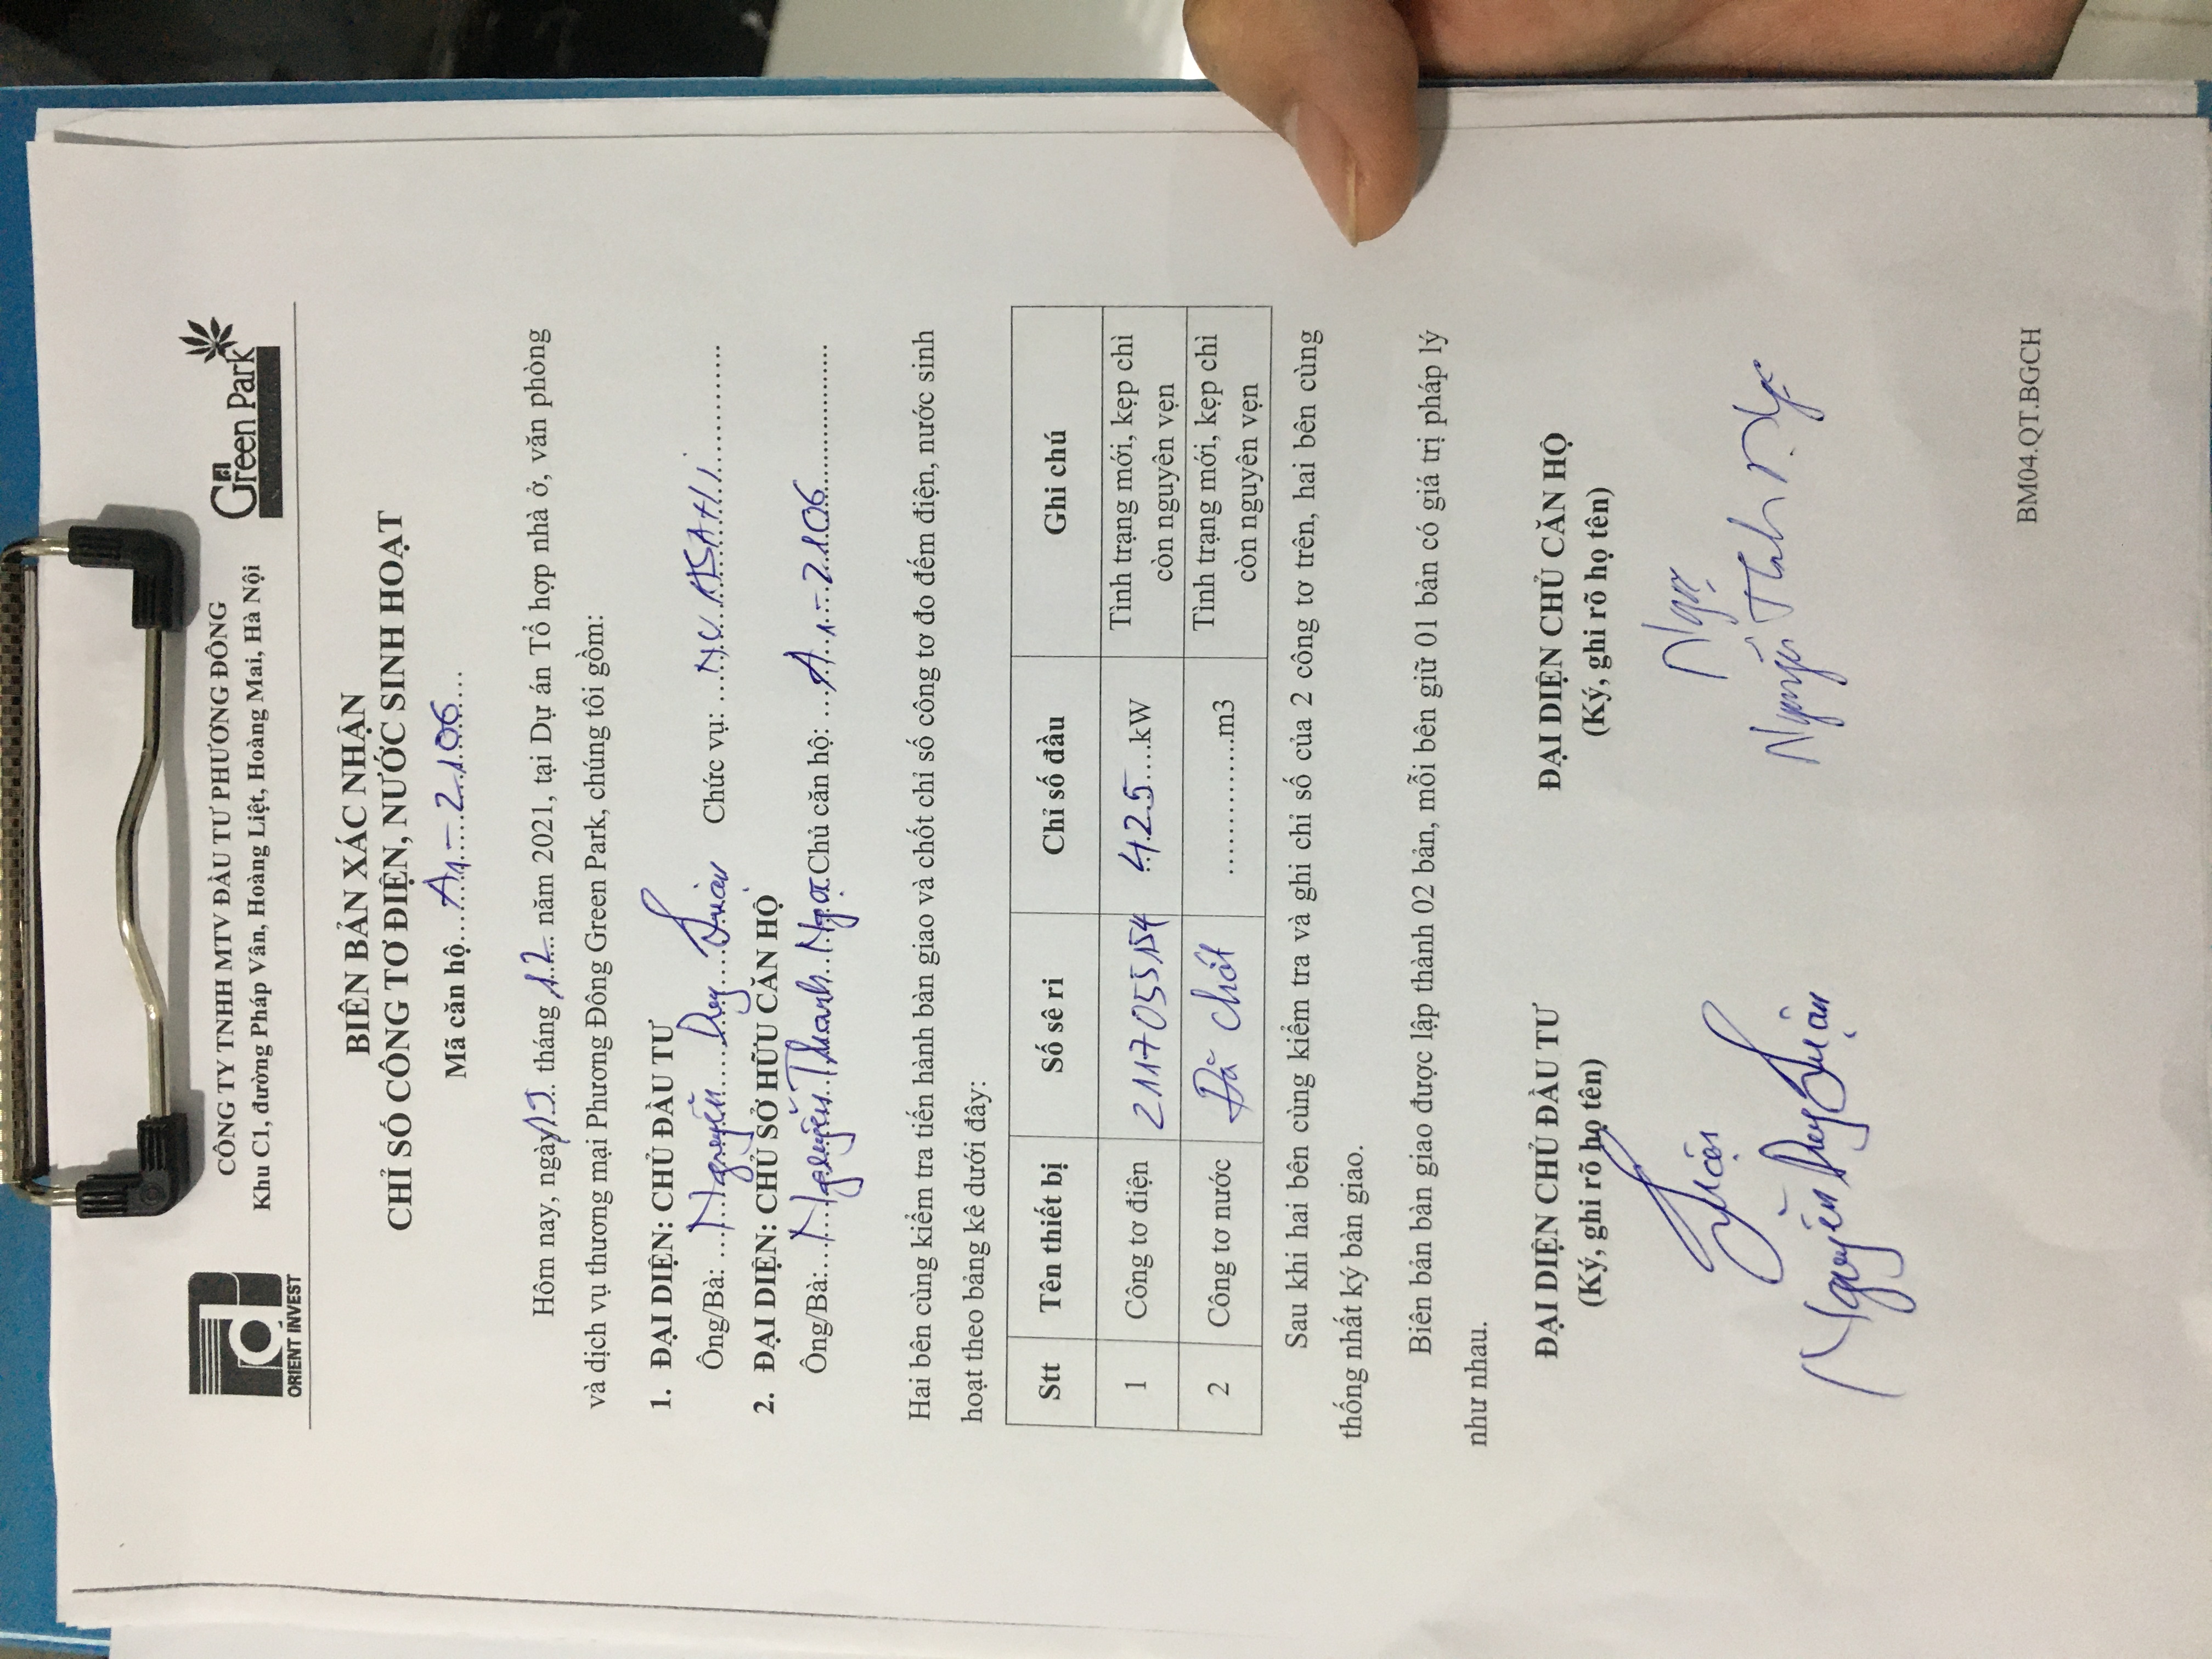 ORIENT INVEST
CÔNG TY TNHH MTV ĐẦU TƯ PHƯƠNG ĐÔNG
Khu C1, đường Pháp Vân, Hoàng Liệt, Hoàng Mai, Hà Nội
Green Park
BIÊN BẢN XÁC NHẬN
CHỈ SỐ CÔNG TƠ ĐIỆN, NƯỚC SINH HOẠT
Mã căn hộ A1-2106
Hôm nay, ngày 19 tháng 12 năm 2021, tại Dự án Tổ hợp nhà ở, văn phòng
và dịch vụ thương mại Phương Đông Green Park, chúng tôi gồm:
1. ĐẠI DIỆN: CHỦ ĐẦU TƯ
Ông/Bà: Nguyễn Duy Luận Chức vụ: NV ASAHI
2. ĐẠI DIỆN: CHỦ SỞ HỮU CĂN HỘ
Ông/Bà: Nguyễn Thanh Ngọc Chủ căn hộ: A1-2106
Hai bên cùng kiểm tra tiến hành bàn giao và chốt chỉ số công tơ đo đếm điện, nước sinh
hoạt theo bảng kê dưới đây:
Stt Tên thiết bị Số sê ri Chỉ số đầu Ghi chú
1 Công tơ điện 2117055154 425 kW Tình trạng mới, kẹp chì
còn nguyên vẹn
2 Công tơ nước Đã chốt m3 Tình trạng mới, kẹp chì
còn nguyên vẹn
Sau khi hai bên cùng kiểm tra và ghi chỉ số của 2 công tơ trên, hai bên cùng
thống nhất ký bàn giao.
Biên bản bàn giao được lập thành 02 bản, mỗi bên giữ 01 bản có giá trị pháp lý
như nhau.
ĐẠI DIỆN CHỦ ĐẦU TƯ ĐẠI DIỆN CHỦ CĂN HỘ
(Ký, ghi rõ họ tên) (Ký, ghi rõ họ tên)
Luận Ngọc
Nguyễn Duy Luận Nguyễn Thanh Ngọc
BM04.QT.BGCH